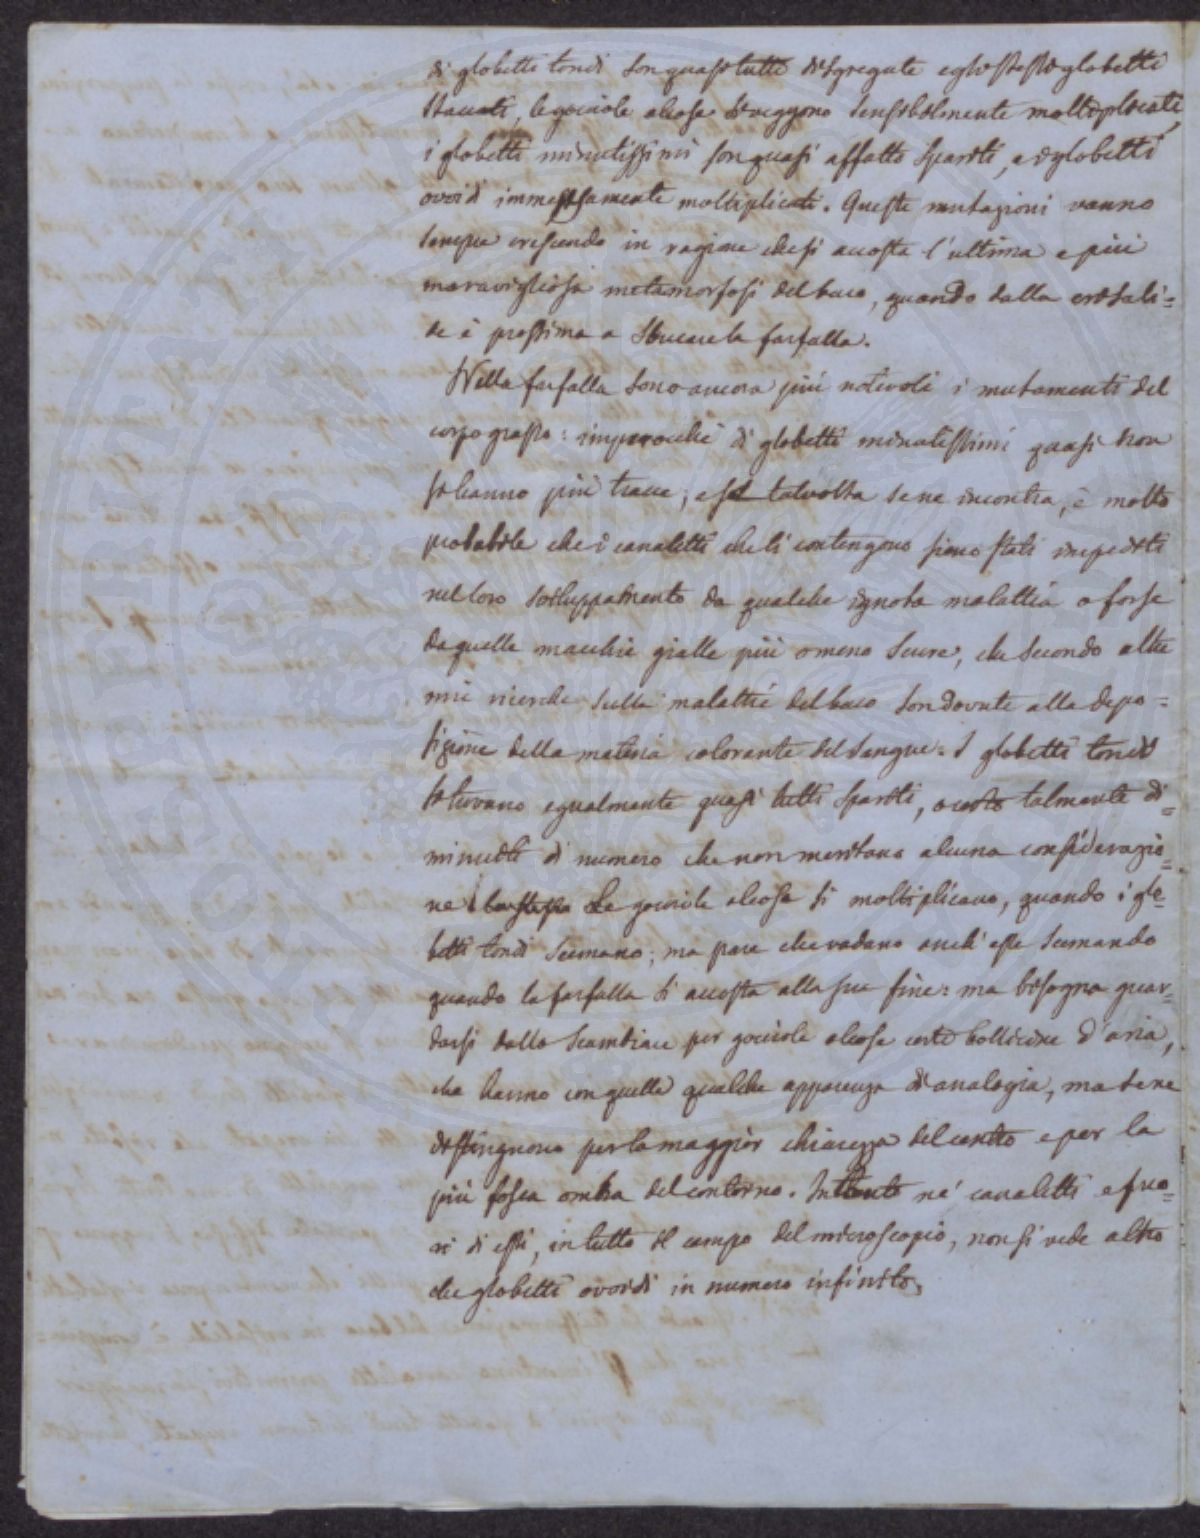 di globetti tondi son quasi tutte disgregate e gli stessi globetti
staccati, le gocciole oleose si veggono sensibilmente moltiplicate,
i globetti minutissimi son quasi affatto spariti, e i globetti
ovoidi immensamente moltiplicati. Queste mutazioni vanno
sempre crescendo in ragione che si accosta l'ultima e più
maravigliosa metamorfosi del baco, quando dalla crisali=
de è prossima a sbucare la farfalla.
Nella farfalla sono ancora più notevoli i mutamenti del
corpo grasso: imperocchè di globetti minutissimi quasi non
si hanno più tracce, e se talvolta se ne incontra, è molto
probabile che i canaletti che li contengono sieno stati impediti
nel loro sviluppamento da qualche ignota malattia o forse
da quelle macchie gialle più o meno scure, che secondo altre
mie ricerche sulle malattie del baco son dovute alla depo=
sizione della materia colorante del sangue. I globetti tondi
si trovano egualmente quasi tutti spariti, o certo talmente di=
minuiti di numero che non meritano alcuna considerazio=
ne Le gocciole oleose si moltiplicano, quando i glo=
betti tondi scemano; ma pare che vadano anch'esse scemando
quando la farfalla si accosta alla sua fine: ma bisogna guar=
darsi dallo scambiare per gocciole oleose certe bollicine d'aria,
che hanno con quelle qualche apparenza di analogia, ma se ne
distinguono per la maggior chiarezza del centro e per la
più fosca ombra del contorno. Intanto ne' canaletti e fuo=
ri di essi, in tutto il campo del microscopio, non si vede altro
che globetti ovoidi in numero infinito.